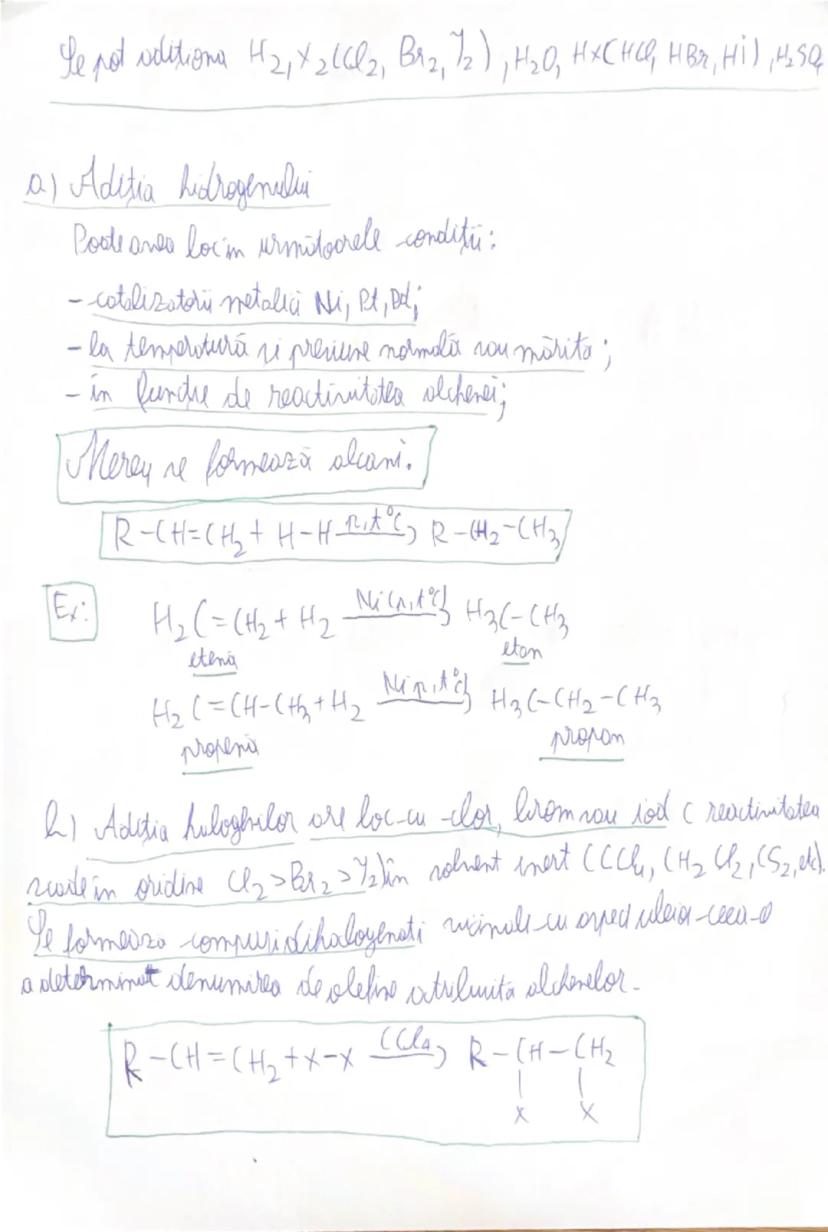 Se pot adiționa H2, X2 (Cl2, Br2, I2), H2O, HX (HCl, HBr, Hi), H2SO4
a) Adiția hidrogenului
Poate avea loc în următoarele condiții:
- catalizatorii metalici Ni, Pt, Pd;
- la temperatură și presiune normală sau mărită;
- în funcție de reactivitatea alchenei;
Mereu se formează alcani.
R-CH=CH2 + H-H p,t°C → R-CH2-CH3
Ex: H2C=CH2 + H2 Ni(p,t°C) → H3C-CH3
etenă etan
H2C=CH-CH3 + H2 Ni p,t°C → H3C-CH2-CH3
propenă propan
b) Adiția halogenilor are loc cu clor, brom sau iod ( reactivitatea
scade în oridine Cl2>Br2>I2) în solvent inert (CCl4, CH2Cl2, CS2, etc).
Se formează compuși dihalogenați vicinali cu aspect uleios ceea ce
a determinat denumirea de olefine atribuită alchenelor.
R-CH=CH2 + X-X CCl4 → R-CH-CH2
| |
X X